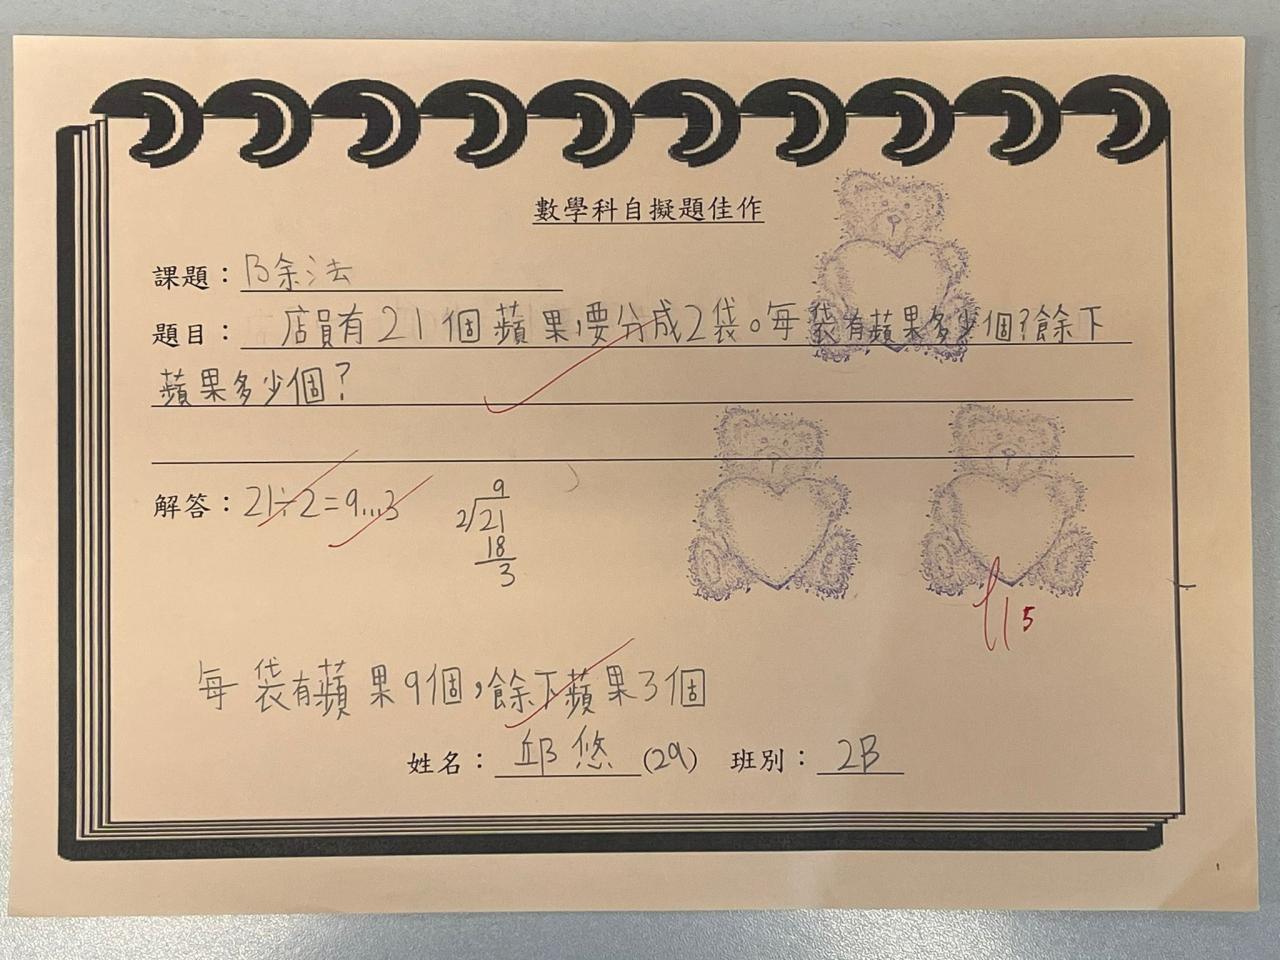 數學科自擬題佳作
課題：除法
題目：店員有21個蘋果,要分成2袋。每袋有蘋果多少個?餘下
蘋果多少個?
解答：21÷2=9...3
9
2√21
18
3
每袋有蘋果9個,餘下蘋果3個
姓名：邱悠(29) 班別：2B
1